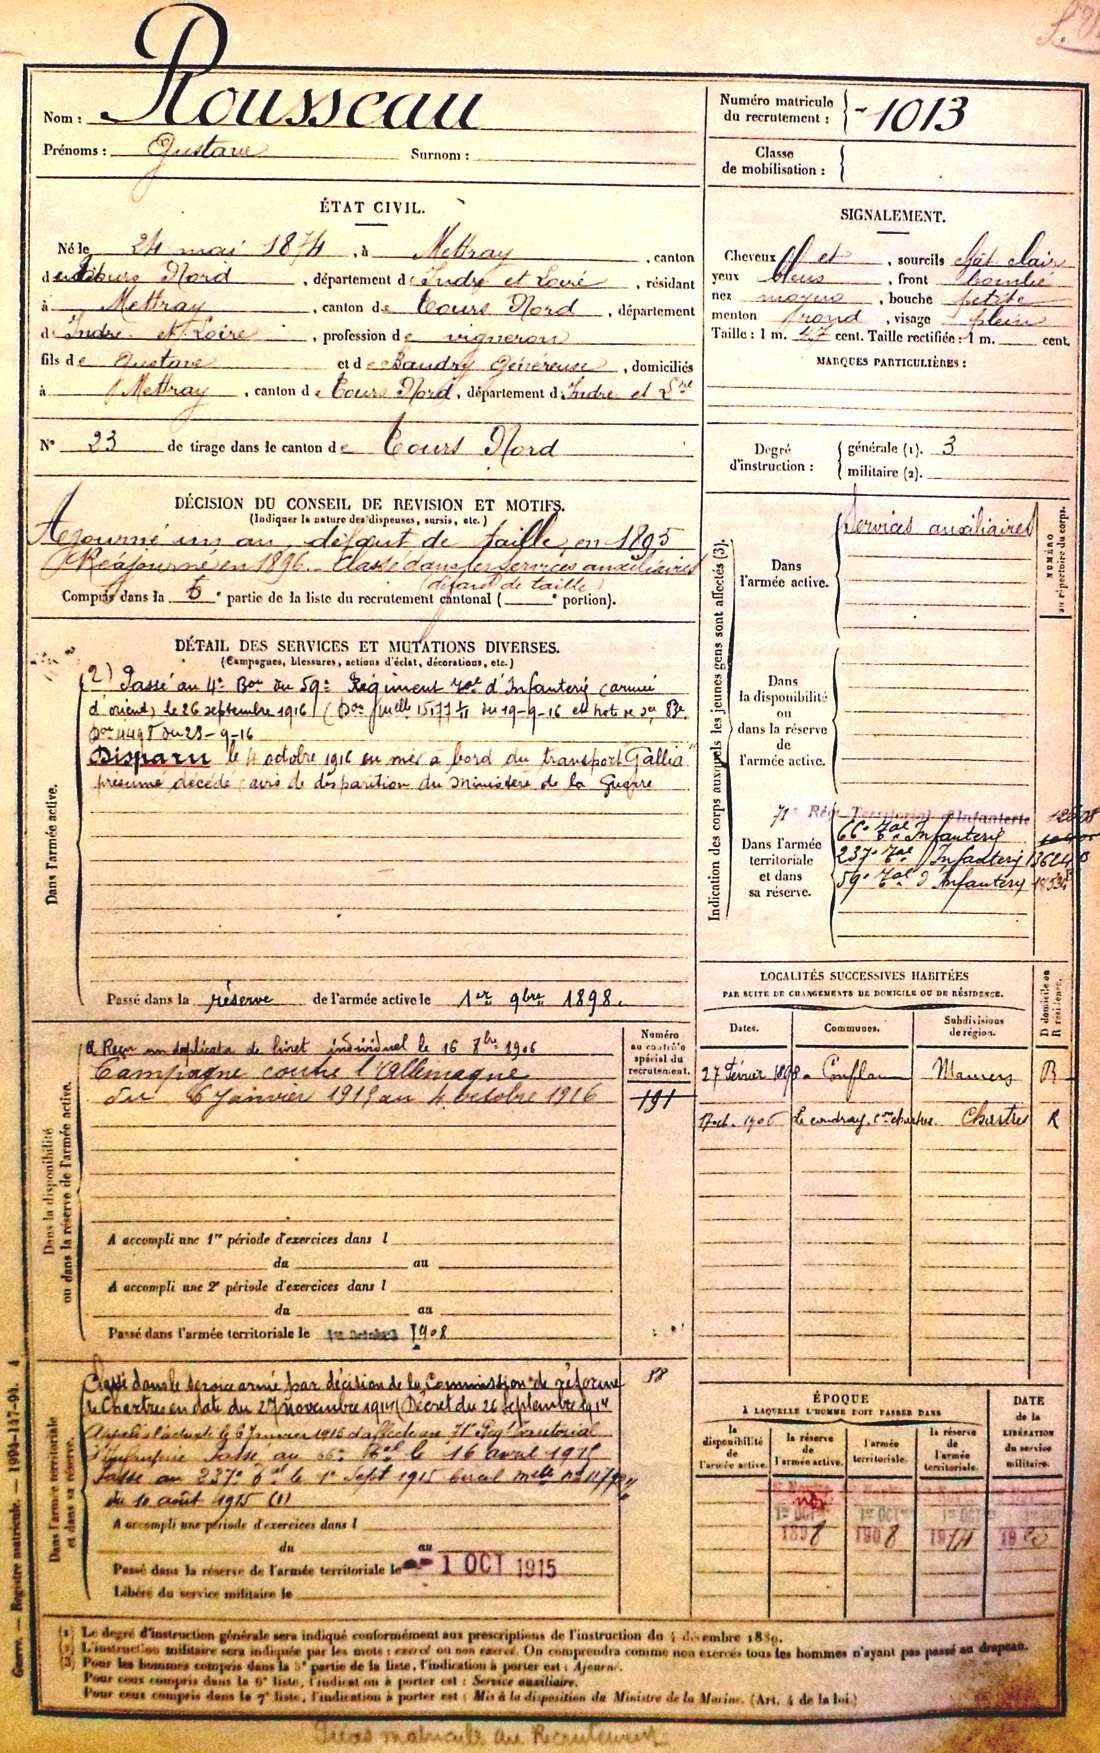 Nom : Rousseau
Prénoms : Gustave Surnom :
Numéro matricule
du recrutement : 1013
Classe
de mobilisation :
ÉTAT CIVIL.
Né le 24 mai 1874, à Mettray, canton
de Tours Nord, département d'Indre et Loire, résidant
à Mettray, canton de Tours Nord, département
d'Indre et Loire, profession de vigneron
fils de Gustave et de Baudry Généreuse, domiciliés
à Mettray, canton de Tours Nord, département d'Indre et Lre
N° 23 de tirage dans le canton de Tours Nord
SIGNALEMENT.
Cheveux et, sourcils chât clair
yeux bleus, front bombé
nez moyen, bouche petite
menton rond, visage plein
Taille : 1 m. 47 cent. Taille rectifiée : 1 m. cent.
MARQUES PARTICULIÈRES :
Degré
d'instruction :
générale (1). 3
militaire (2).
DÉCISION DU CONSEIL DE REVISION ET MOTIFS.
(Indiquer la nature des dispenses, sursis, etc.)
Ajourné un an défaut de taille, en 1895
Réajourné en 1896. Classé dans les services auxiliaires
(défaut de taille)
Compris dans la 5e partie de la liste du recrutement cantonal ( e portion).
DÉTAIL DES SERVICES ET MUTATIONS DIVERSES.
(Campagnes, blessures, actions d'éclat, décorations, etc.)
Dans l'armée active.
2) Passé au 4e Bon du 59e Régiment Tal d'Infanterie (armée
d'orient) le 26 septembre 1916 du 19-9-16 et note
du 23-9-16
Disparu le 4 octobre 1916 en mer à bord du transport "Gallia"
présumé décédé avis de disparition du Ministère de la Guerre
Passé dans la réserve de l'armée active le 1er 9bre 1898.
Indication des corps auxquels les jeunes gens sont affectés (3).
NUMÉRO
au répertoire du corps.
Dans
l'armée active.
Services auxiliaires
Dans
la disponibilité
ou
dans la réserve
de
l'armée active.
Dans l'armée
territoriale
et dans
sa réserve.
71e Rég. Territorial d'Infanterie
66e Tal Infanterie
237e Tal Infanterie
59e Tal d'Infanterie
LOCALITÉS SUCCESSIVES HABITÉES
PAR SUITE DE CHANGEMENTS DE DOMICILE OU DE RÉSIDENCE.
D domicile ou
R résidence.
Dates. Communes. Subdivisions
de région.
27 Février 1898 Conflans Mamers R
17 oct. 1906 Le coudray, con chartres. Chartres R
Dans la disponibilité
ou dans la réserve de l'armée active.
Numéro
au contrôle
spécial du
recrutement.
191
a Reçu un duplicata de livret individuel le 16 8bre 1906
Campagne contre l'Allemagne
du 6 Janvier 1915 au 4 octobre 1916
A accompli une 1re période d'exercices dans l
du au
A accompli une 2e période d'exercices dans l
du au
Passé dans l'armée territoriale le 1er Octobre 1908
Dans l'armée territoriale
et dans sa réserve.
88
Classé dans le service armé par décision de la Commission de réforme
de Chartres en date du 27 novembre 1914 (Décret du 26 septembre 1914
Appelé à l'activité le 6 Janvier 1915 et affecté au 71e Régt Territorial
d'Infanterie Passé au 66e Tal le 16 avril 1915
Passé au 237e Tal le 1er Sept 1915
du 10 août 1915 (1)
A accompli une période d'exercices dans l
du au
Passé dans la réserve de l'armée territoriale le 1 OCT 1915
Libéré du service militaire le
ÉPOQUE
A LAQUELLE L'HOMME DOIT PASSER DANS
DATE
de la
LIBÉRATION
du service
militaire.
la
disponibilité
de
l'armée active.
la réserve
de
l'armée active.
l'armée
territoriale.
la réserve
de
l'armée
territoriale.
1898 1908 1914 1920
(1) Le degré d'instruction générale sera indiqué conformément aux prescriptions de l'instruction du 4 décembre 1889.
(2) L'instruction militaire sera indiquée par les mots : exercé ou non exercé. On comprendra comme non exercés tous les hommes n'ayant pas passé au drapeau.
(3) Pour les hommes compris dans la 5e partie de la liste, l'indication à porter est : Ajourné.
Pour ceux compris dans la 6e liste, l'indication à porter est : Service auxiliaire.
Pour ceux compris dans la 7e liste, l'indication à porter est : Mis à la disposition du Ministre de la Marine. (Art. 4 de la loi.)
Guerre. — Registre matricule. — 1904-147-94.
Pièces matricule au Recrutement